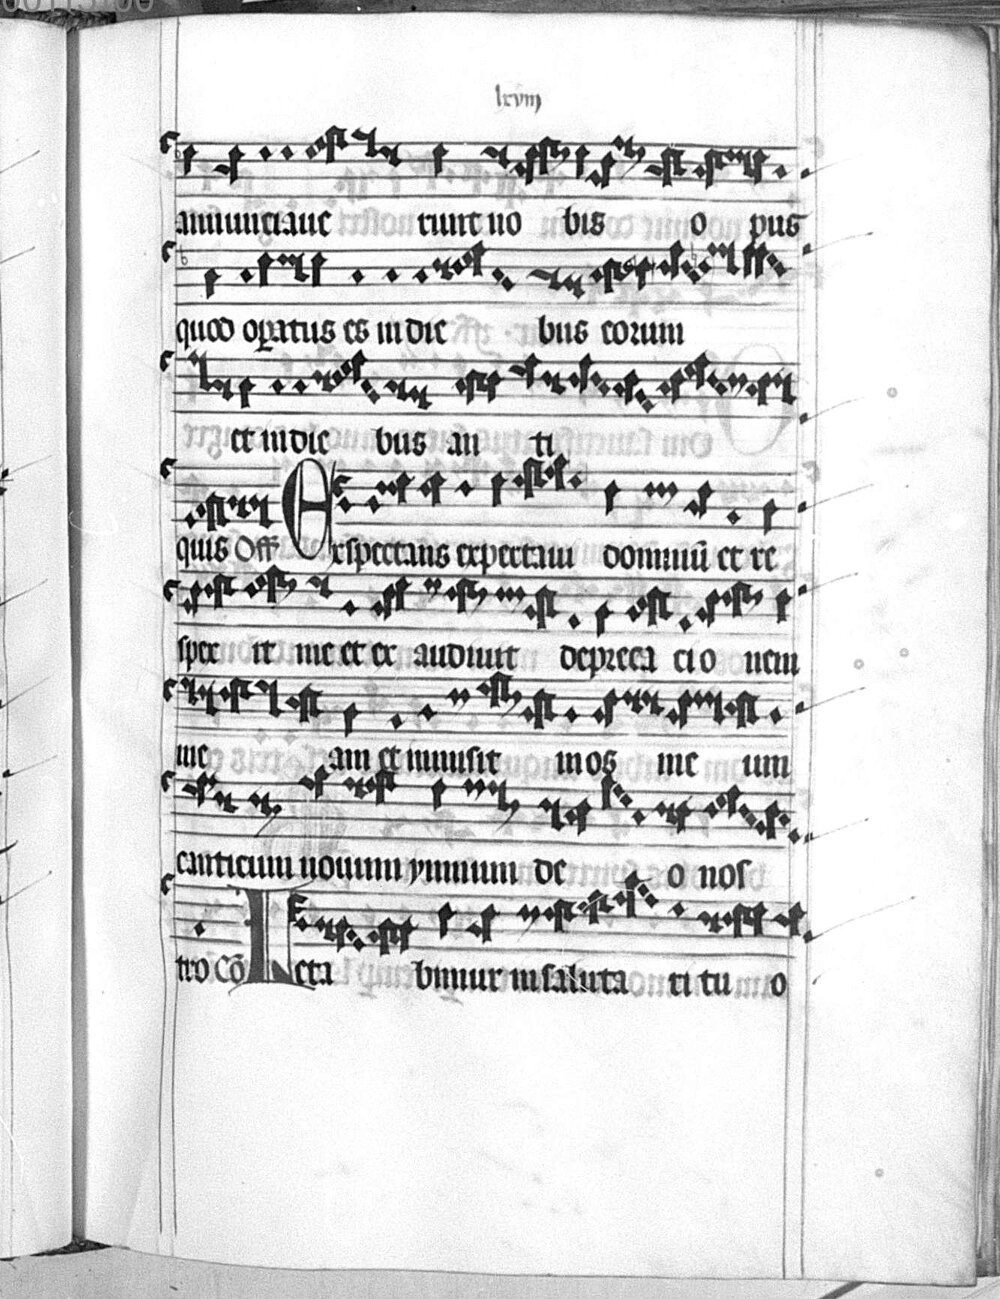 lxviii
annunciaue runt no bis o pus
quod opatus es in die bus eorum
et in die bus an ti
quis Off Exspectans expectaui dominū et re
spex it me et ex audiuit depreca ci o nem
me am et inmisit in os me um
canticum nouum ymnum de o nos
tro Cō Leta bimur in saluta ri tu o